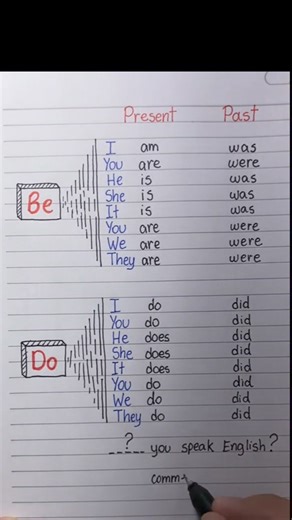 Present Past
I am was
You are were
He is was
She is was
Be
It is was
You are were
We are were
They are were
I do did
You do did
He does did
She does did
Do
It does did
You do did
We do did
They do did
__?__ you speak English?
comm